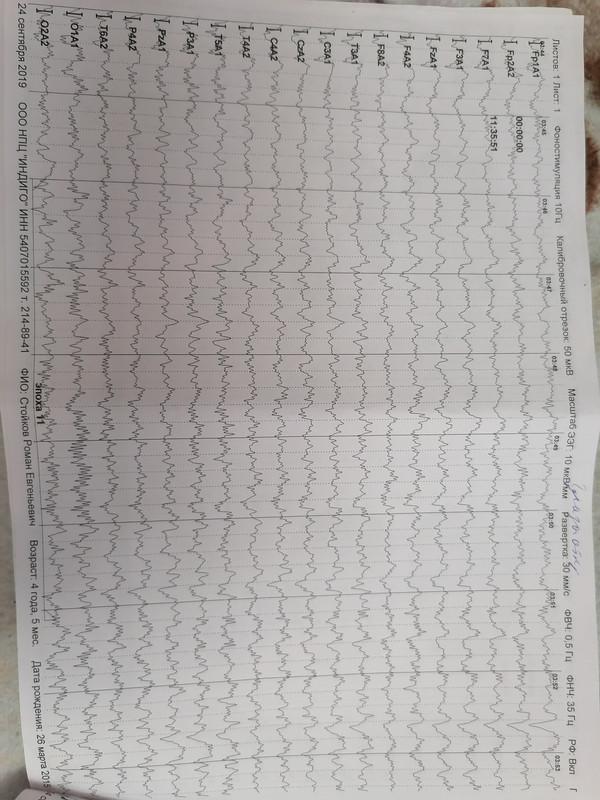 Листов: 1 Лист: 1 Фоностимуляция 10Гц Калибровочный отрезок: 50 мкВ Масштаб ЭЭГ: 10 мкВ/мм Развертка: 30 мм/с ФВЧ: 0,5 Гц ФНЧ: 35 Гц РФ: Вкл
03:44 03:45 03:46 03:47 03:48 03:49 03:50 03:51 03:52 03:53
Fp1A1
00:00:00
Fp2A2
11:35:51
F7A1
F3A1
FzA1
F4A2
F8A2
T3A1
C3A1
CzA2
C4A2
T4A2
T5A1
P3A1
PzA1
P4A2
T6A2
O1A1
O2A2
Эпоха 11
24 сентября 2019 ООО НПЦ "ИНДИГО" ИНН 5407015592 т. 214-89-41 ФИО: Стойков Роман Евгеньевич Возраст: 4 года, 5 мес. Дата рождения: 26 марта 2015